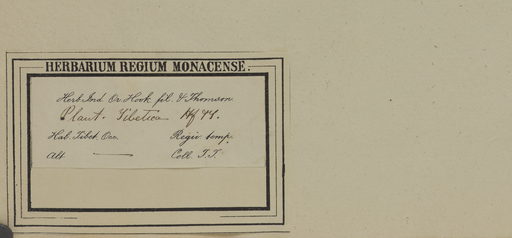 HERBARIUM REGIUM MONACENSE.
Herb. Ind. Or. Hook. fil. & Thomson
Plant. Tibetica
Hab. Tibet. Occ. Regio temp.
Alt. — Coll. T.T.